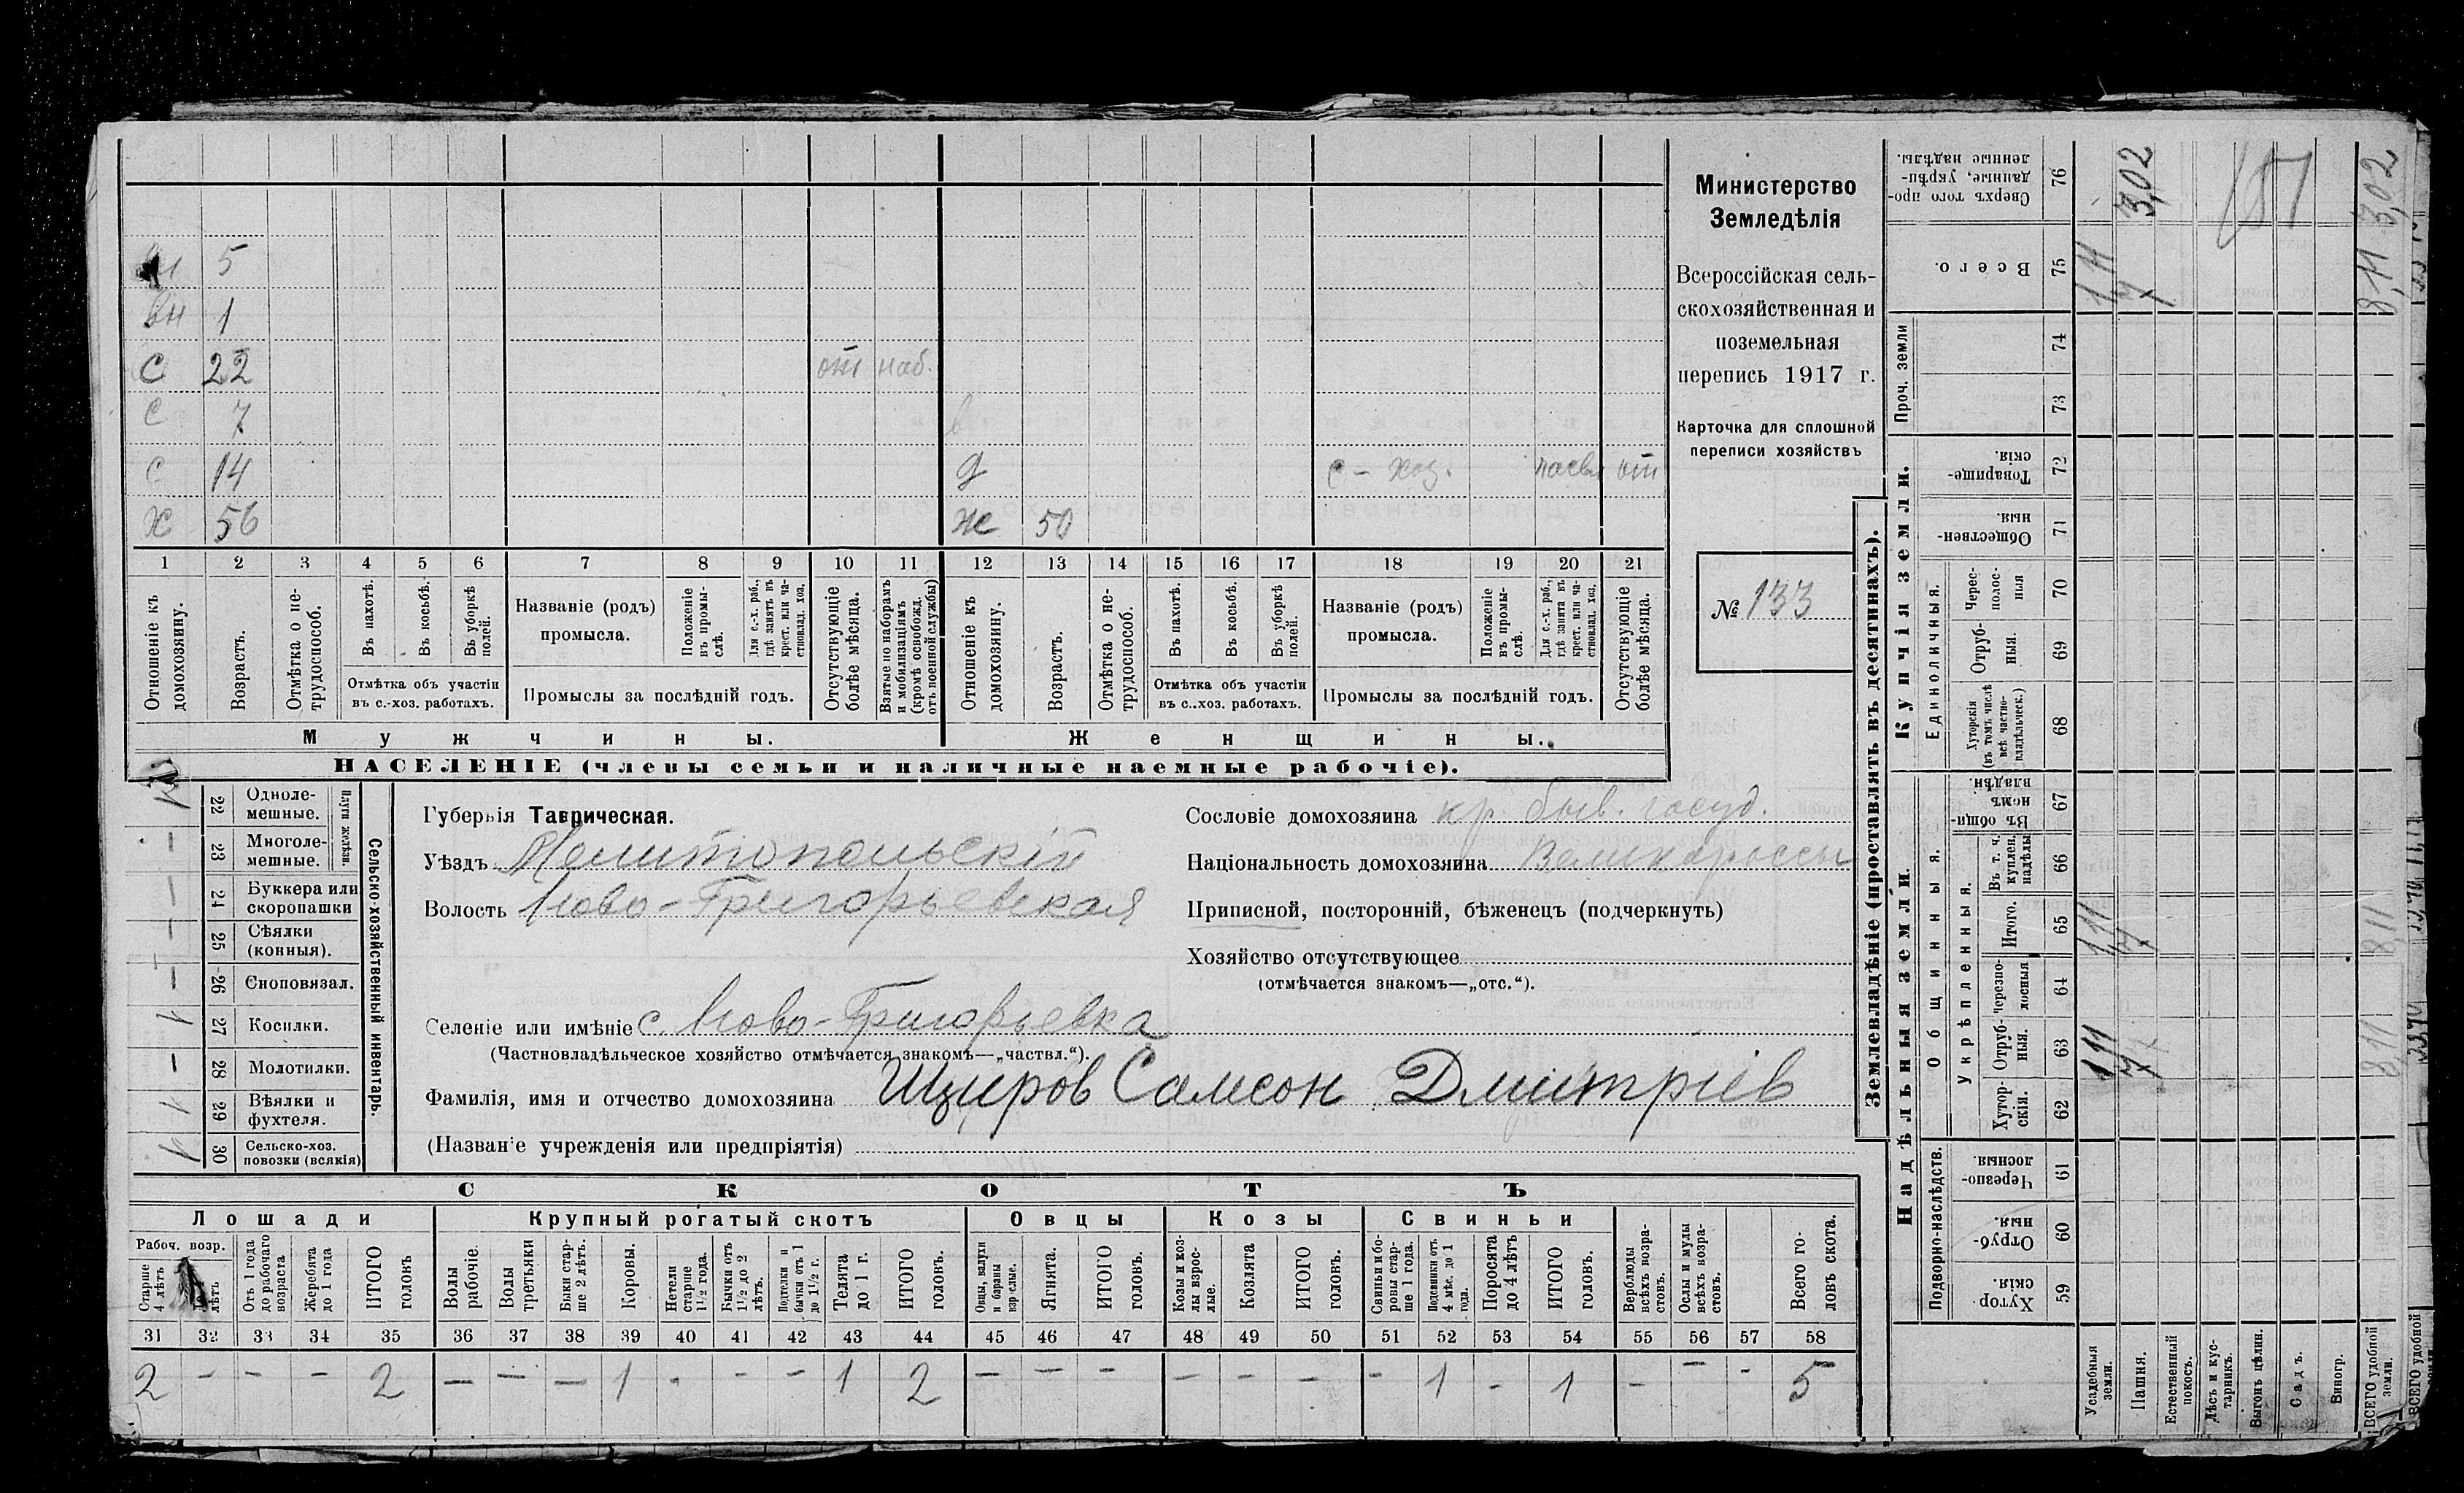 вн 5
вн 1
с 22 от наб.
с 7 в
с 14 д с-хоз. от
х 56 ж 50
1 2 3 4 5 6 7 8 9 10 11 12 13 14 15 16 17 18 19 20 21
Отношеніе къ домохозяину.
Возрастъ.
Отмѣтка о нетрудоспособ.
Въ пахотѣ.
Въ косьбѣ.
Въ уборкѣ полей.
Отмѣтка объ участіи въ с.-хоз. работахъ.
Названіе (родъ) промысла.
Положеніе въ промыслѣ.
Для с.-х. раб., гдѣ занятъ въ крест. или частновлад. хоз.
Промыслы за послѣдній годъ.
Отсутствующіе болѣе мѣсяца.
Взятые по наборамъ и мобилизаціямъ (кромѣ освобожд. отъ военной службы)
Отношеніе къ домохозяину.
Возрастъ.
Отмѣтка о нетрудоспособ.
Въ пахотѣ.
Въ косьбѣ.
Въ уборкѣ полей.
Отмѣтка объ участіи въ с.-хоз. работахъ.
Названіе (родъ) промысла.
Положеніе въ промыслѣ.
Для с.-х. раб., гдѣ занята въ крест. или частновлад. хоз.
Промыслы за послѣдній годъ.
Отсутствующіе болѣе мѣсяца.
Мужчины. Женщины.
НАСЕЛЕНІЕ (члены семьи и наличные наемные рабочіе).
Министерство
Земледѣлія
Всероссійская сель-
скохозяйственная и
поземельная
перепись 1917 г.
Карточка для сплошной
переписи хозяйствъ
№ 133
Сельско-хозяйственный инвентарь.
Плуги желѣзн.
22 Однолемешные.
23 Многолемешные. —
24 Буккера или скоропашки —
25 Сѣялки (конныя). —
26 Сноповязал. —
27 Косилки. 1
28 Молотилки. —
29 Вѣялки и фухтеля. 1
30 Сельско-хоз. повозки (всякія) 1
Губернія Таврическая.
Уѣздъ Мелитопольскій
Волость Ново-Григорьевская
Селеніе или имѣніе с. Ново-Григорьевка
(Частновладѣльческое хозяйство отмѣчается знакомъ—„частвл.“).
Фамилія, имя и отчество домохозяина Щиров Самсон Дмитріев
(Названіе учрежденія или предпріятія)
Сословіе домохозяина кр. быв. госуд.
Національность домохозяина Великороссы
Приписной, посторонній, бѣженецъ (подчеркнуть)
Хозяйство отсутствующее
(отмѣчается знакомъ—„отс.“).
СКОТЪ
Лошади Крупный рогатый скотъ Овцы Козы Свиньи
Рабоч. возр.
Старше 4 лѣтъ
лѣтъ
Отъ 1 года до рабочаго возраста
Жеребята до 1 года
ИТОГО головъ
Волы рабочіе.
Волы третьяки
Быки старше 2 лѣтъ.
Коровы.
Нетели старше 1½ года.
Бычки отъ 1½ до 2 лѣтъ.
Подтелки и бычки отъ 1 до 1½ г.
Телята до 1 г.
ИТОГО головъ.
Овцы, валухи и бараны взрослые.
Ягнята.
ИТОГО головъ.
Козы и козлы взрослые.
Козлята
ИТОГО головъ.
Свиньи и боровы старше 1 года.
Подсвинки отъ 4 мѣс. до 1 года.
Поросята до 4 лѣтъ
ИТОГО головъ.
Верблюды всѣхъ возрастовъ.
Ослы и мулы всѣхъ возрастовъ.
Всего головъ скота.
31 32 33 34 35 36 37 38 39 40 41 42 43 44 45 46 47 48 49 50 51 52 53 54 55 56 57 58
2 - - - 2 — — — 1 - - - 1 2 — — - — - - - 1 - 1 - — - 5
Землевладѣніе (проставлять въ десятинахъ).
Надѣльныя земли. Купчія земли. Проч. земли
Подворно-наслѣдств.
Общинныя.
Укрѣпленныя.
Единоличныя.
59 Хуторскія.
60 Отрубныя.
61 Черезполосныя.
62 Хуторскія.
63 Отрубныя. 8,11
64 Черезполосныя
65 Итого. 8,11
66 Въ т. ч. куплен. надѣлы
67 Въ общинномъ владѣн.
68 Хуторскія (въ томъ числѣ всѣ частновладѣльческ.)
69 Отрубныя.
70 Чересполосныя
71 Общественныя.
72 Товарищескія.
73
74
75 Всего. 8,11
76 Сверхъ того проданные, укрѣпленные надѣлы. 3,02 3,02
Усадебныя земли.
Пашня.
Естественный покосъ.
Лѣсъ и кустарникъ.
Выгонъ цѣлин.
Садъ.
Виногр.
ВСЕГО удобной земли.
ВСЕГО удобной